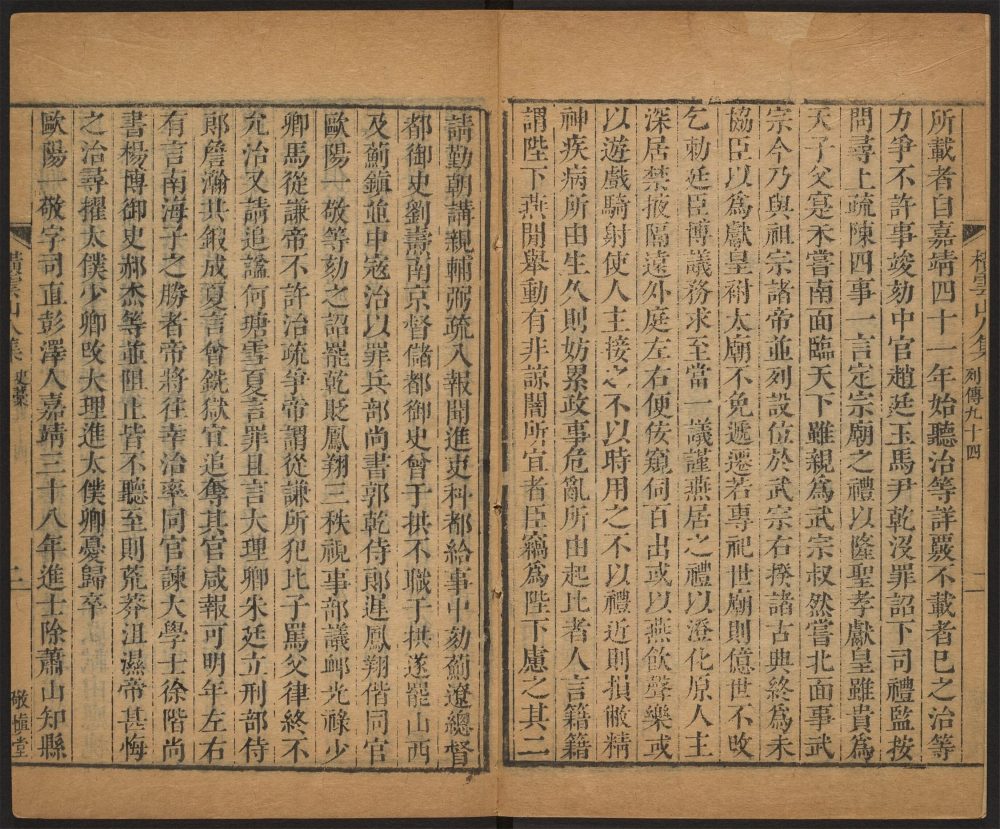 列傳九十四
所載者自嘉靖四十一年始聽治等詳覈不載者已之治等
力爭不許事竣劾中官趙廷玉馬尹乾沒罪詔下司禮監按
問尋上疏陳四事一言定宗廟之禮以隆聖孝獻皇雖貴爲
天子父寔未嘗南面臨天下雖親爲武宗叔然嘗北面事武
宗今乃與祖宗諸帝並列設位於武宗右揆諸古典終爲未
協臣以爲獻皇祔太廟不免遞遷若專祀世廟則億世不改
乞勅廷臣博議務求至當一議謹燕居之禮以澄化原人主
深居禁掖隔遠外庭左右便佞窺伺百出或以燕飲聲樂或
以遊戲騎射使人主接之不以時用之不以禮近則損敝精
神疾病所由生久則妨累政事危亂所由起比者人言籍籍
謂陛下燕閒舉動有非諒闇所宜者臣竊爲陛下慮之其二
請勤朝講親輔弼疏入報聞進吏科都給事中劾薊遼總督
都御史劉燾南京督儲都御史曾于拱不職于拱遂罷山西
及薊鎮並中寇治以罪兵部尚書郭乾侍郎遲鳳翔偕同官
歐陽一敬等劾之詔罷乾貶鳳翔三秩視事部議卹光祿少
卿馬從謙帝不許治疏爭帝謂從謙所犯比子罵父律終不
允治又請追諡何瑭雪夏言罪且言大理卿朱廷立刑部侍
郎詹瀚共鍛成夏言曾銑獄宜追奪其官咸報可明年左右
有言南海子之勝者帝將往幸治率同官諫大學士徐階尚
書楊博御史郝杰等並阻止皆不聽至則荒莽沮濕帝甚悔
之治尋擢太僕少卿改大理進太僕卿憂歸卒
歐陽一敬字司直彭澤人嘉靖三十八年進士除蕭山知縣
橫雲山人集
史藁
二
敬愼堂